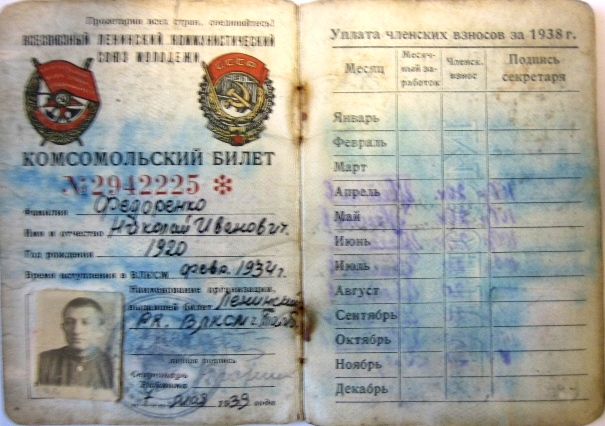 Пролетарии всех стран, соединяйтесь!
ВСЕСОЮЗНЫЙ ЛЕНИНСКИЙ КОММУНИСТИЧЕСКИЙ
СОЮЗ МОЛОДЕЖИ
СССР
КОМСОМОЛЬСКИЙ БИЛЕТ
№2942225 *
Фамилия Федоренко
Имя и отчество Николай Иванович
Год рождения 1920
Время вступления в ВЛКСМ февр. 1934г.
Наименование организации,
выдавшей билет Ленинский
РК. ВЛКСМ г.
личная подпись
1939 года
Уплата членских взносов за 1938 г.
Месяц
Месячный заработок
Членск. взнос
Подпись секретаря
Январь
Февраль
Март
Апрель
Май
Июнь
Июль
Август
Сентябрь
Октябрь
Ноябрь
Декабрь